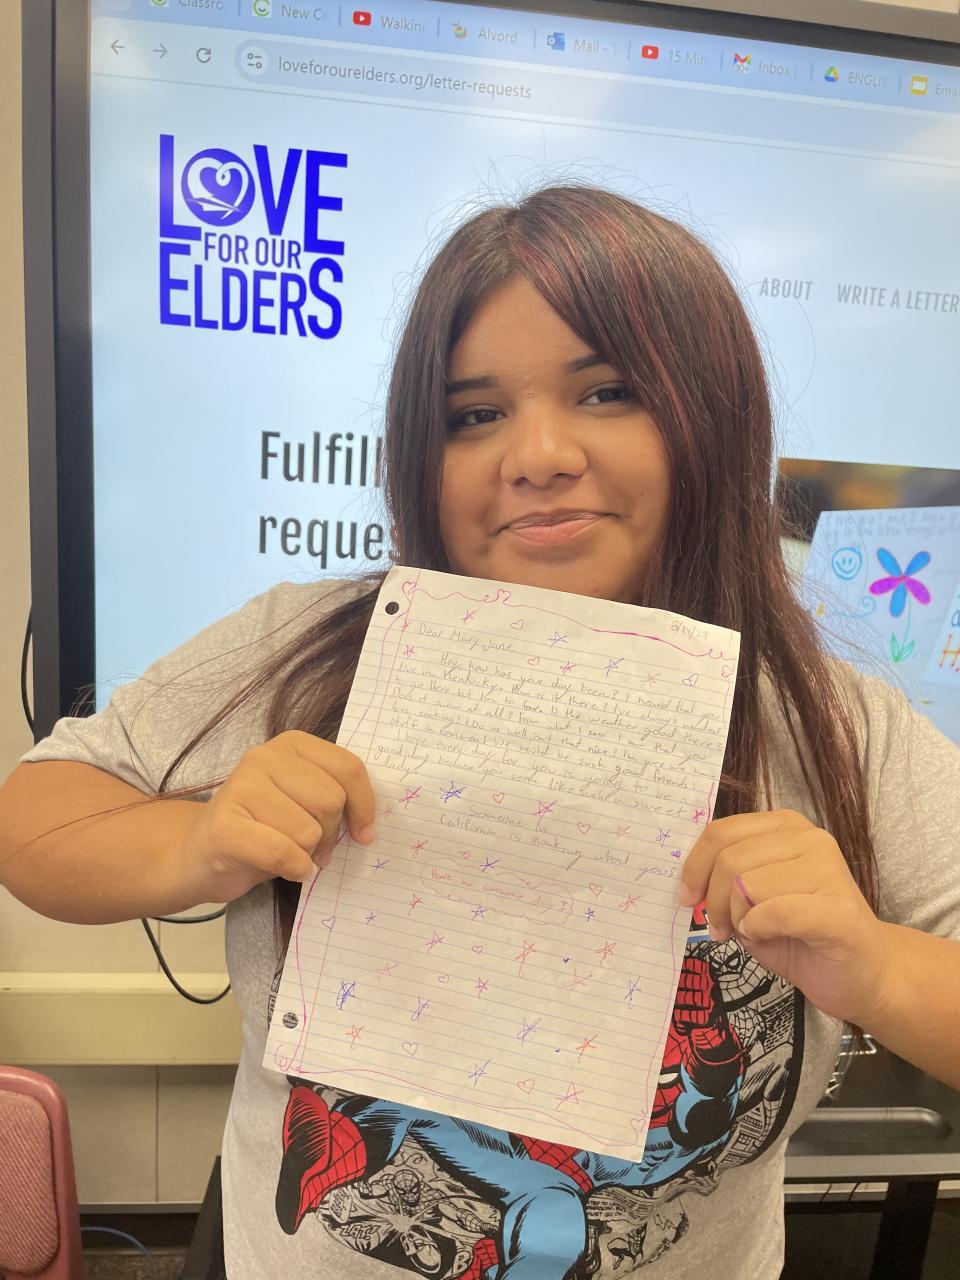 Classro
New C
Walkin
Alvord
Mail - T
15 Min
Inbox (
ENGLIS
Emai
loveforourelders.org/letter-requests
LOVE
FOR OUR
ELDERS
ABOUT WRITE A LETTER
Fulfill
reque
8/14/24
Dear Mary Jane,
Hey, how has your day been? I heard that you
live in Kentucky, How is it there? I've always wanted
to go there but im to far. Is the weather good there?
Does it snow at all? From what I seen I saw that you
love cooking! I Do as well, isnt that nice? Im sure we have
stuff in common! We would be such good friends!
I hope every day for you is going to be a
good day because you seem like such a sweet
lady.
Someone in
California is thinking about you!
Have an awesome day!